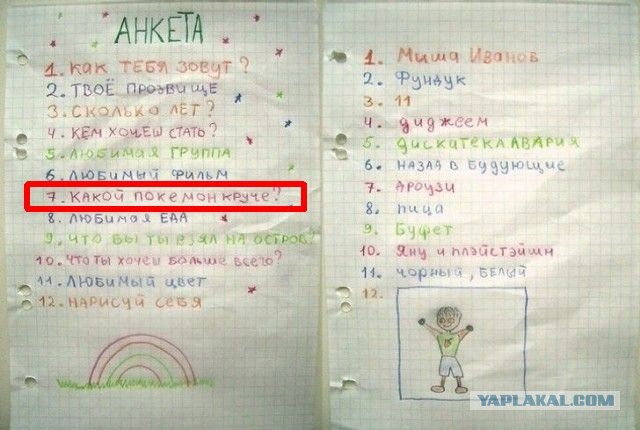 АНКЕТА
1. КАК ТЕБЯ ЗОВУТ?
2. ТВОЁ ПРОЗВИЩЕ
3. СКОЛЬКО ЛЕТ?
4. КЕМ ХОЧЕШ СТАТЬ?
5. ЛЮБИМАЯ ГРУППА
6. ЛЮБИМЫЙ ФИЛЬМ
7. КАКОЙ ПОКЕМОН КРУЧЕ?
8. ЛЮБИМАЯ ЕДА
9, ЧТО БЫ ТЫ ВЗЯЛ НА ОСТРОВ?
10. ЧТО ТЫ ХОЧЕШ БОЛЬШЕ ВСЕГО?
11. ЛЮБИМЫЙ ЦВЕТ
12. НАРИСУЙ СЕБЯ
1. Миша Иванов
2. Фундук
3. 11
4. диджеем
5. ДИСКАТЕКА АВАРИЯ
6. НАЗАД В БУДУЮЩИЕ
7. АРОУЗИ
8. пица
9. Буфет
10. Яну и плэйстэйшн
11. чорный, БЕЛЫЙ
12.
YAPLAKAL.COM